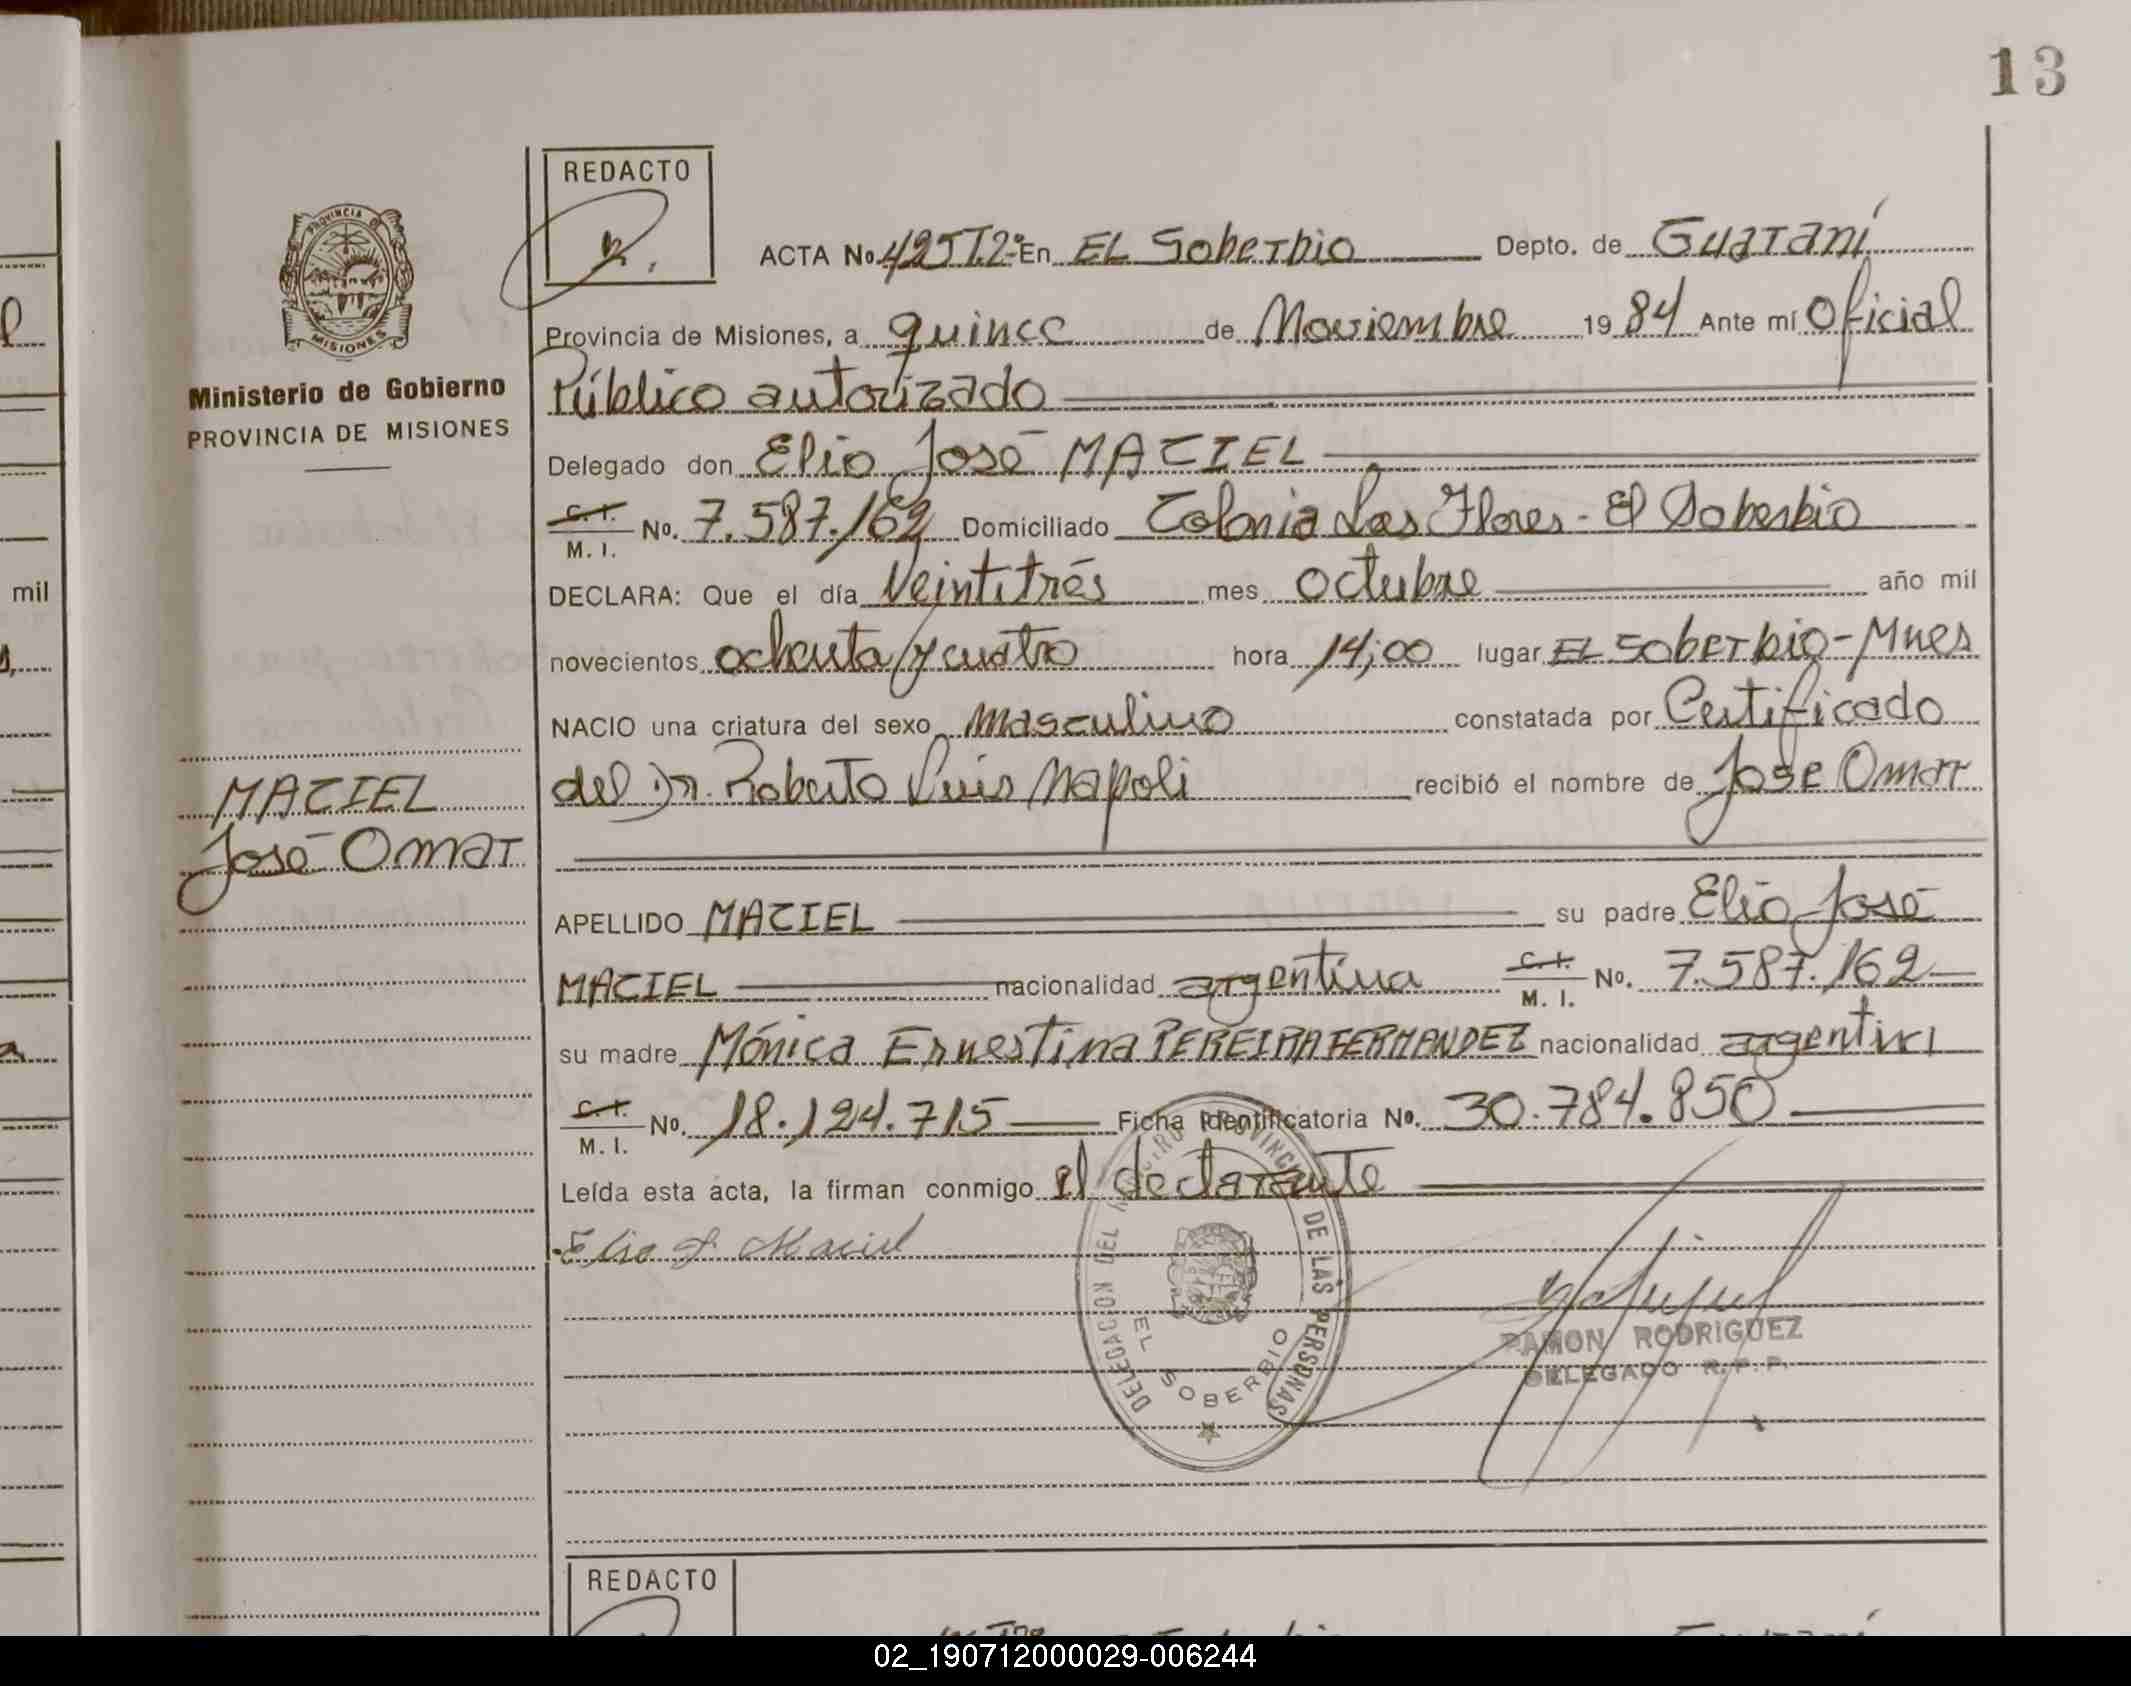 13
REDACTO
PROVINCIA DE
MISIONES
Ministerio de Gobierno
PROVINCIA DE MISIONES
ACTA No 425T.2º En EL Soberbio Depto. de Guaraní
Provincia de Misiones, a quince de Noviembre 19 84 Ante mí Oficial
Público autorizado
Delegado don Elio José MACIEL
C. I.
M. I. No. 7.587.162 Domiciliado Colonia Las Flores - El Soberbio
DECLARA: Que el día Veintitrés mes octubre año mil
novecientos ochenta y cuatro hora 14;00 lugar EL Soberbio-Mnes
NACIO una criatura del sexo masculino constatada por Certificado
del Dr. Roberto Luis Napoli recibió el nombre de José Omar
MACIEL
José Omar
APELLIDO MACIEL su padre Elio José
MACIEL nacionalidad argentina C. I.
M. I. No. 7.587.162
su madre Mónica Ernestina PEREIRA FERNANDEZ nacionalidad argentina
C. I.
M. I. No. 18.124.715 Ficha Identificatoria No. 30.784.850
Leída esta acta, la firman conmigo el declarante
Elio J. Maciel
DELEGACION DEL REGISTRO PROVINCIAL DE LAS PERSONAS
EL SOBERBIO
RAMON RODRIGUEZ
DELEGADO R. P. P.
REDACTO
mil
02_190712000029-006244